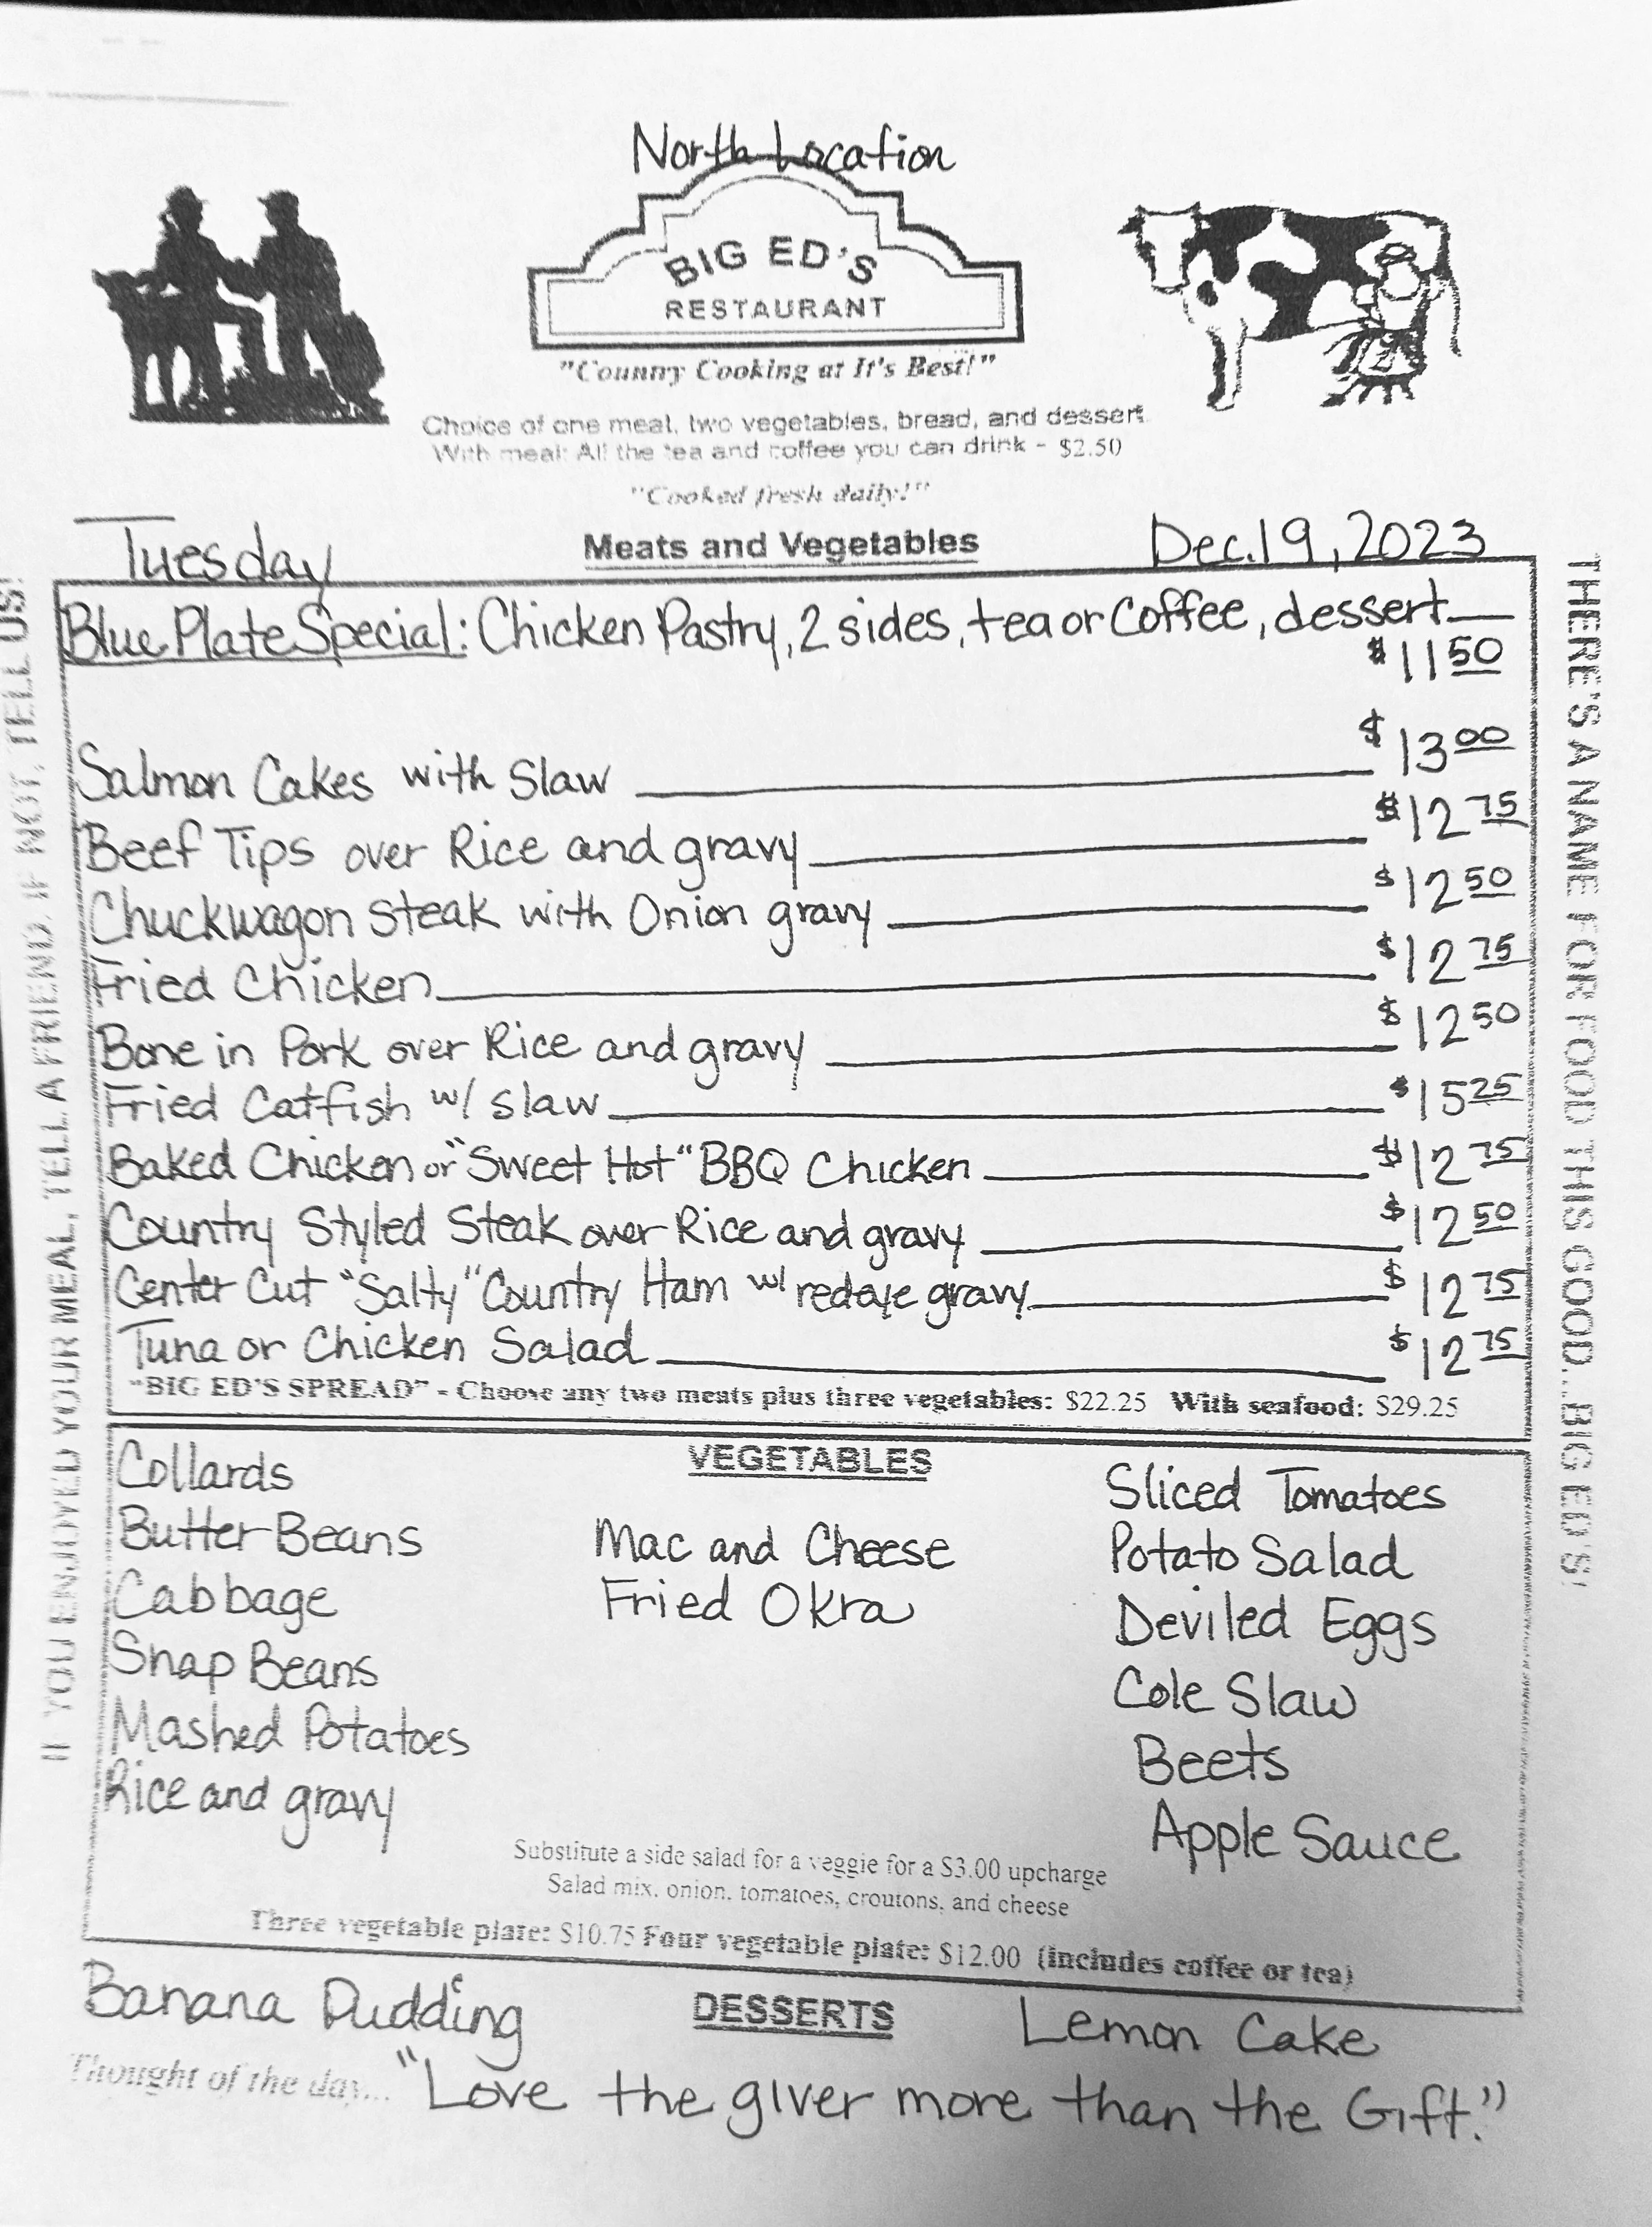 North Location
BIG ED'S
RESTAURANT
"Counny Cooking at It's Best!"
Choice of one meat, two vegetables, bread, and dessert.
With meal: All the tea and coffee you can drink - $2.50
"Cooked fresh daily!"
Tuesday Meats and Vegetables Dec.19, 2023
Blue Plate Special: Chicken Pastry, 2 sides, tea or Coffee, dessert
$11 50
Salmon Cakes with Slaw $13 00
Beef Tips over Rice and gravy $12 75
Chuckwagon steak with Onion gravy $12 50
Fried Chicken $12 75
Bone in Pork over Rice and gravy $12 50
Fried Catfish w/ slaw $15 25
Baked Chicken or "Sweet Hot" BBQ Chicken $12 75
Country Styled Steak over Rice and gravy $12 50
Center Cut "Salty" Country Ham w/ redeye gravy $12 75
Tuna or Chicken Salad $12 75
"BIG ED'S SPREAD" - Choose any two meats plus three vegetables: $22.25 With seafood: $29.25
VEGETABLES
Collards
Butter Beans
Cabbage
Snap Beans
Mashed Potatoes
Rice and gravy
Mac and Cheese
Fried Okra
Sliced Tomatoes
Potato Salad
Deviled Eggs
Cole Slaw
Beets
Apple Sauce
Substitute a side salad for a veggie for a $3.00 upcharge
Salad mix, onion, tomatoes, croutons, and cheese
Three vegetable plate: $10.75 Four vegetable plate: $12.00 (includes coffee or tea)
Banana Pudding DESSERTS Lemon Cake
Thought of the day... "Love the giver more than the Gift."
IF YOU ENJOYED YOUR MEAL, TELL A FRIEND. IF NOT, TELL US!
THERE'S A NAME FOR FOOD THIS GOOD...BIG ED'S!